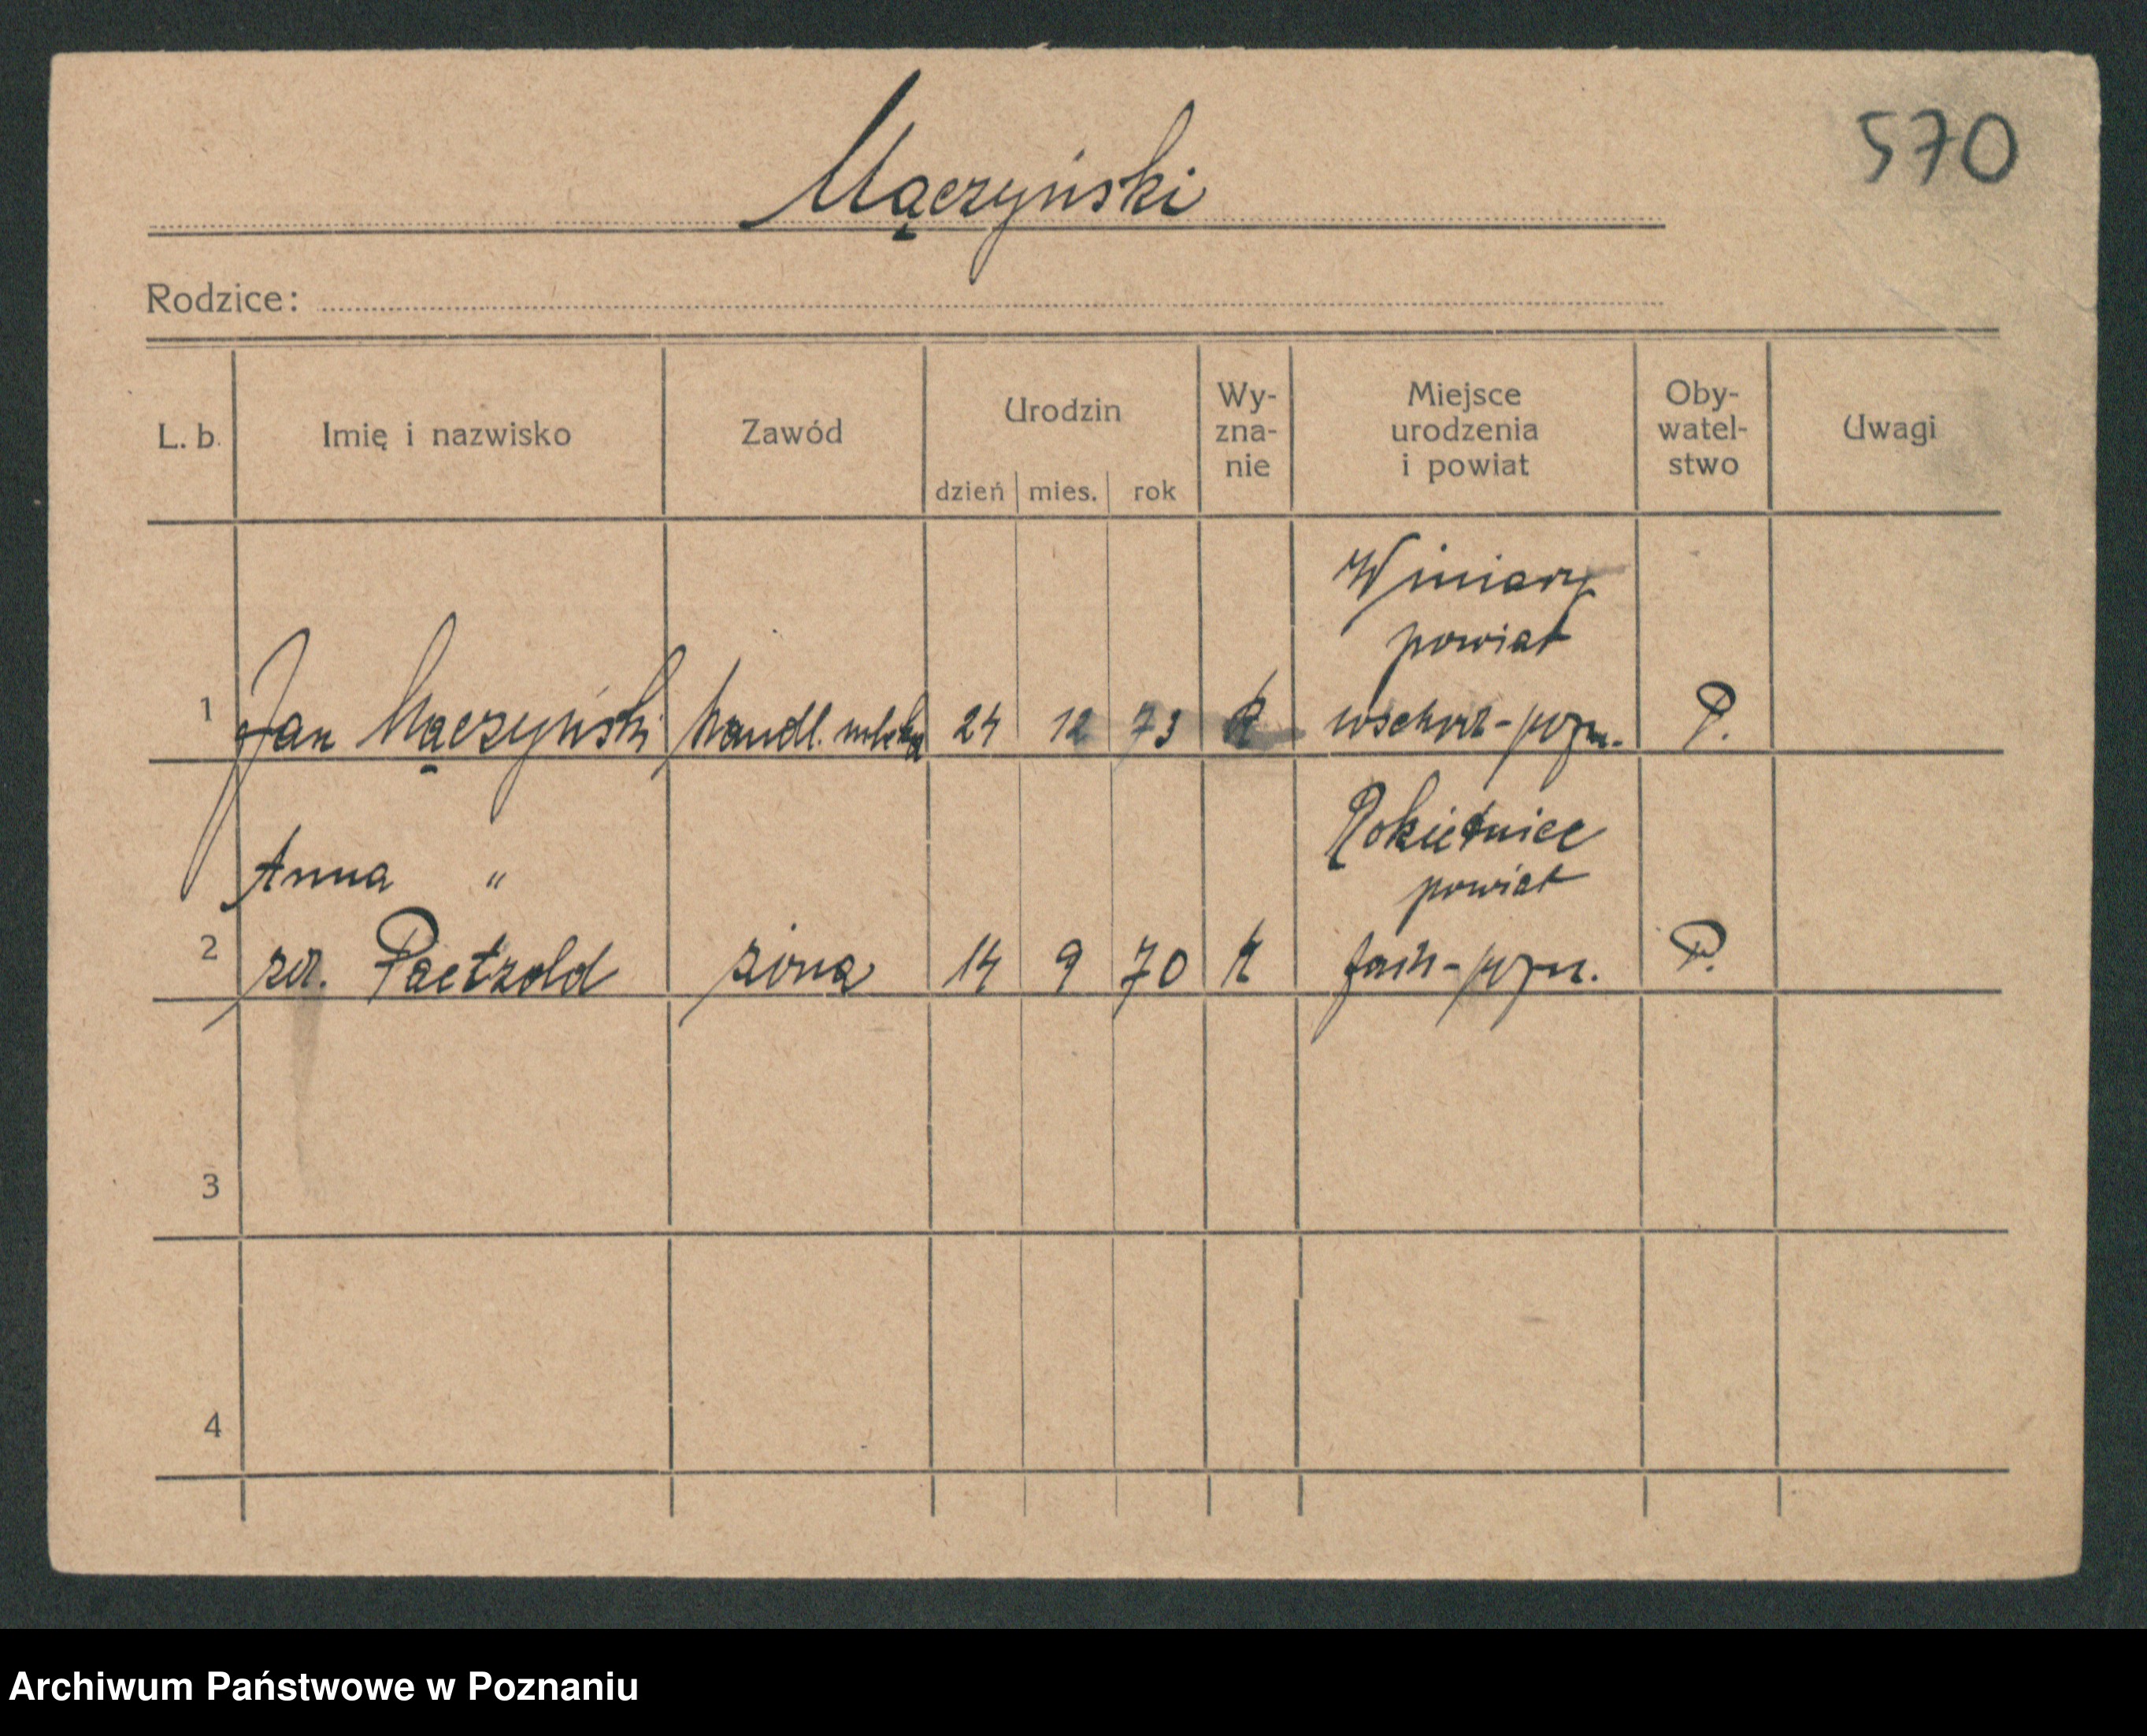 570
Mączyński
Rodzice:
L. b. Imię i nazwisko Zawód Urodzin Wy-zna-nie Miejsce urodzenia i powiat Oby-watel-stwo Uwagi
dzień mies. rok
Winiary
powiat
1 Jan Mączyński handl. mleka 24 12 73 K wschod-pozn. P.
Rokietnice
Anna " powiat
2 zd. Paetzold żona 14 9 70 K pozn. P.
3
4
Archiwum Państwowe w Poznaniu